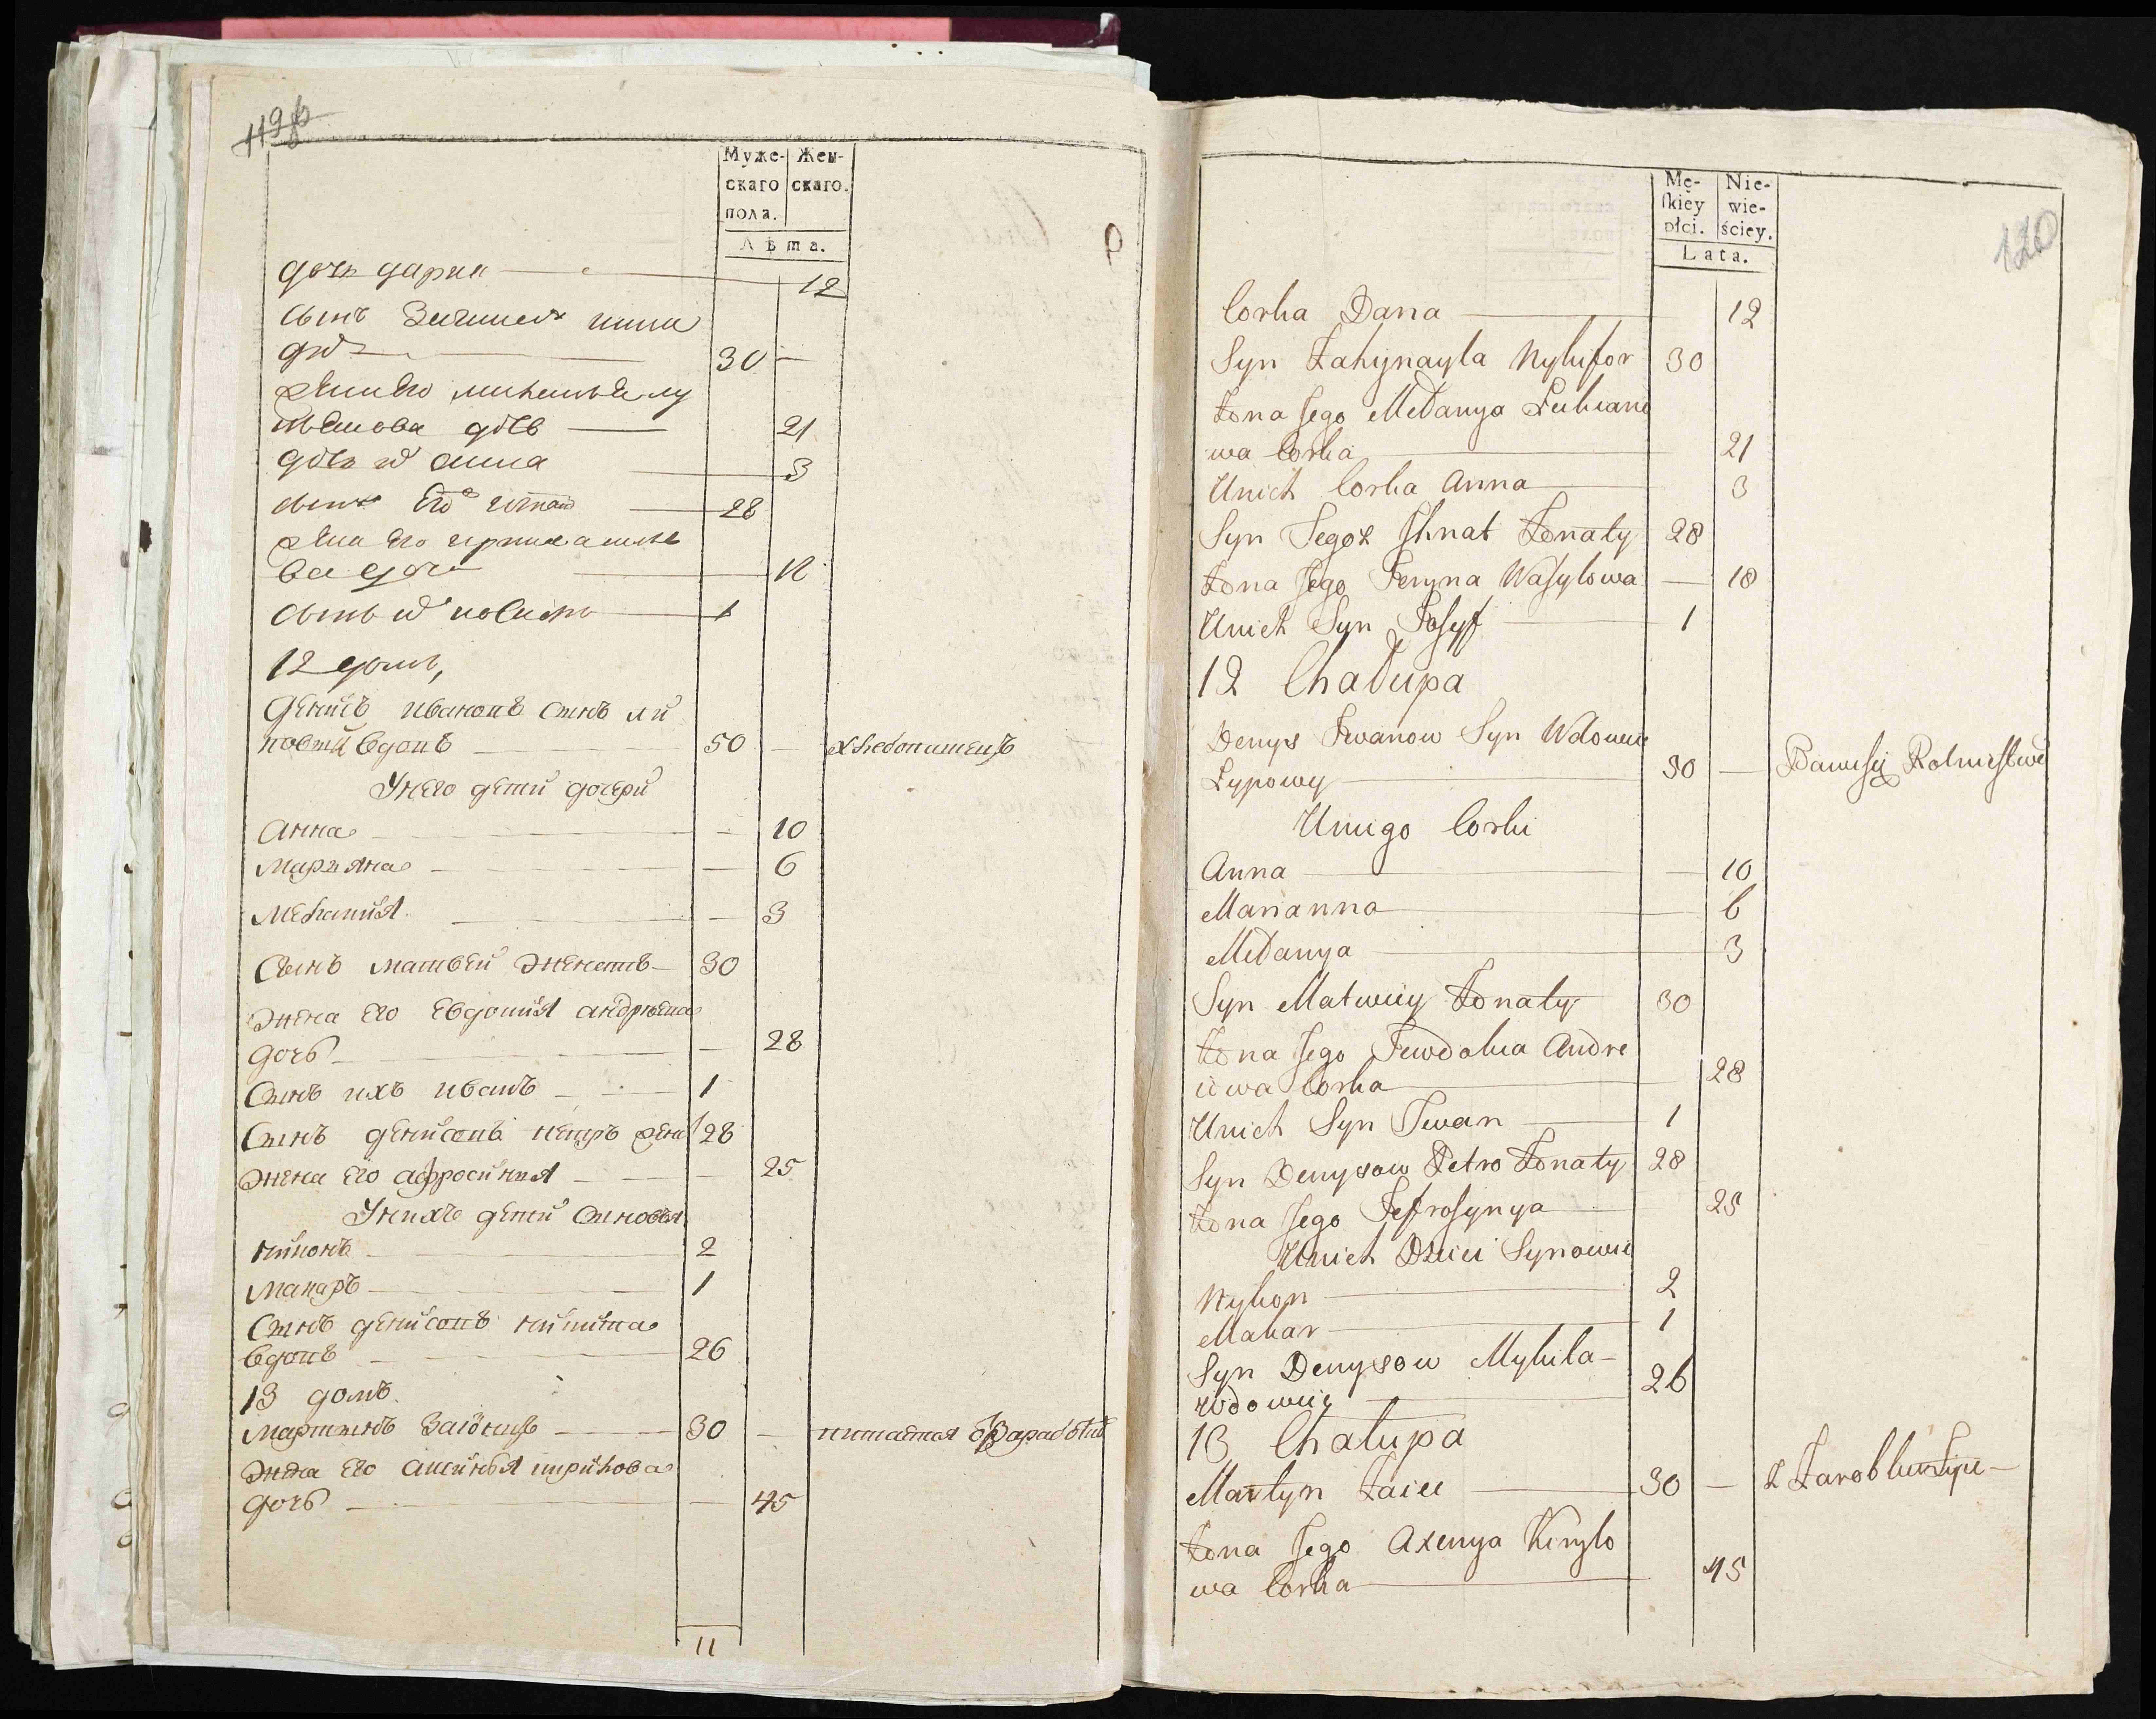 119б
Муже- Жен-
скаго скаго.
пола.
Лѣта.
дочь дария 12
сынъ
30
жена его
дочь 21
дочь анна 3
сынъ его 28
жена его
18
сынъ 1
12 домъ,
Денисъ ивановъ сынъ ли
повый вдовъ 50 — хлебопашецъ
У него детей дочери
Анна — 10
Марияна — 6
Мелания — 3
Сынъ матвей женатъ 30
Жена его евдокия андреева
дочь — 28
Сынъ ихъ иванъ 1
Сынъ денисовъ петръ жена 28
Жена его афросиния — 25
У нихъ детей сыновья
никонъ 2
макаръ 1
Сынъ денисовъ никита
вдовъ 26
13 домъ.
Мартынъ Заіонцъ 30 — питается
Жена его аксинья кирилова
дочь — 45
11
Mę- Nie-
skiey wie-
płci. ściey.
Lata.
120
Corka Daria 12
Syn Nykifor 30
Żona Jego Mełanya Łukiano
wa Corka 21
Unich Corka Anna 3
Syn Tegoż Ihnat Żonaty 28
Żona Jego Wasylowa — 18
Unich Syn Josyf 1
12 Chałupa
Denys Iwanow Syn Wdowiec
Łypowy 50 — Bawisię Rolnictwe
Uniego Corki
Anna 10
Marianna 6
Mełanya 3
Syn Matwiey Żonaty 30
Żona Jego Jewdokia Andre
iewa Corka 28
Unich Syn Iwan 1
Syn Denysow Petro Żonaty 28
Żona Jego Jefrosynya 25
Unich Dzieci Synowie
Nykon 2
Makar 1
Syn Denysow Mykita
wdowiec 26
13 Chałupa
Martyn Zaiec 30 — z Zarobku żyie
Żona Jego Axenya Kirylo
wa Corka 45